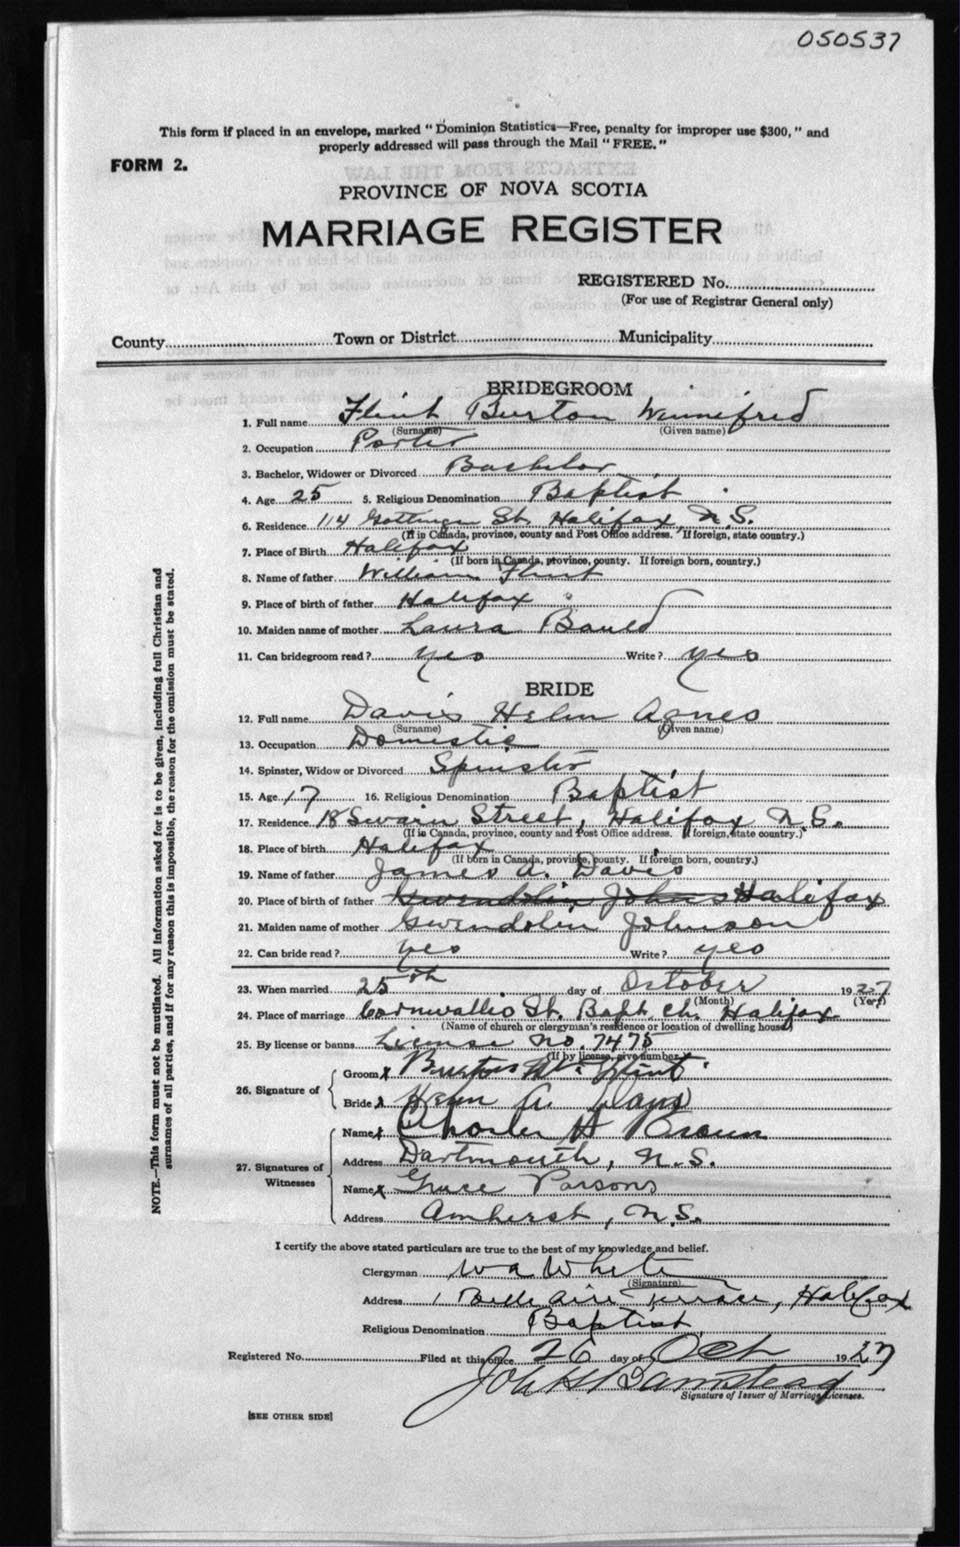 050537
This form if placed in an envelope, marked "Dominion Statistics—Free, penalty for improper use $300," and
properly addressed will pass through the Mail "FREE."
FORM 2.
PROVINCE OF NOVA SCOTIA
MARRIAGE REGISTER
REGISTERED No.
(For use of Registrar General only)
County Town or District Municipality
BRIDEGROOM
1. Full name Flint Burton Winnifred
(Surname) (Given name)
2. Occupation Porter
3. Bachelor, Widower or Divorced Bachelor
4. Age 25 5. Religious Denomination Baptist
6. Residence 114 Gottingen St. Halifax, N.S.
(If in Canada, province, county and Post Office address. If foreign, state country.)
7. Place of Birth Halifax
(If born in Canada, province, county. If foreign born, country.)
8. Name of father William Flint
9. Place of birth of father Halifax
10. Maiden name of mother Laura Bauld
11. Can bridegroom read? yes Write? yes
BRIDE
12. Full name Davis Helen Agnes
(Surname) (Given name)
13. Occupation Domestic
14. Spinster, Widow or Divorced Spinster
15. Age 17 16. Religious Denomination Baptist
17. Residence 18 Swain Street, Halifax N.S.
(If is Canada, province, county and Post Office address. If foreign, state country.)
18. Place of birth Halifax
(If born in Canada, province, county. If foreign born, country.)
19. Name of father James A. Davis
20. Place of birth of father Gwendolin Johns Halifax
21. Maiden name of mother Gwendolin Johnson
22. Can bride read? yes Write? yes
23. When married 25th day of October 1927
(Month) (Year)
24. Place of marriage Cornwallis St. Bapt. Ch. Halifax
(Name of church or clergyman's residence or location of dwelling house)
25. By license or banns License No. 7475
(If by license, give number.)
26. Signature of
Groom x Burton W. Flint
Bride x Helen A. Davis
27. Signatures of Witnesses
Name x Charles H Brown
Address Dartmouth, N.S.
Name x Grace Parsons
Address Amherst, N.S.
I certify the above stated particulars are true to the best of my knowledge and belief.
Clergyman W A White
(Signature)
Address 1 Belle Aire Terrace, Halifax
Religious Denomination Baptist
Registered No. Filed at this office 26 day of Oct 1927
Signature of Issuer of Marriage Licenses.
[SEE OTHER SIDE]
NOTE.—This form must not be mutilated. All information asked for is to be given, including full Christian and
surnames of all parties, and if for any reason this is impossible, the reason for the omission must be stated.